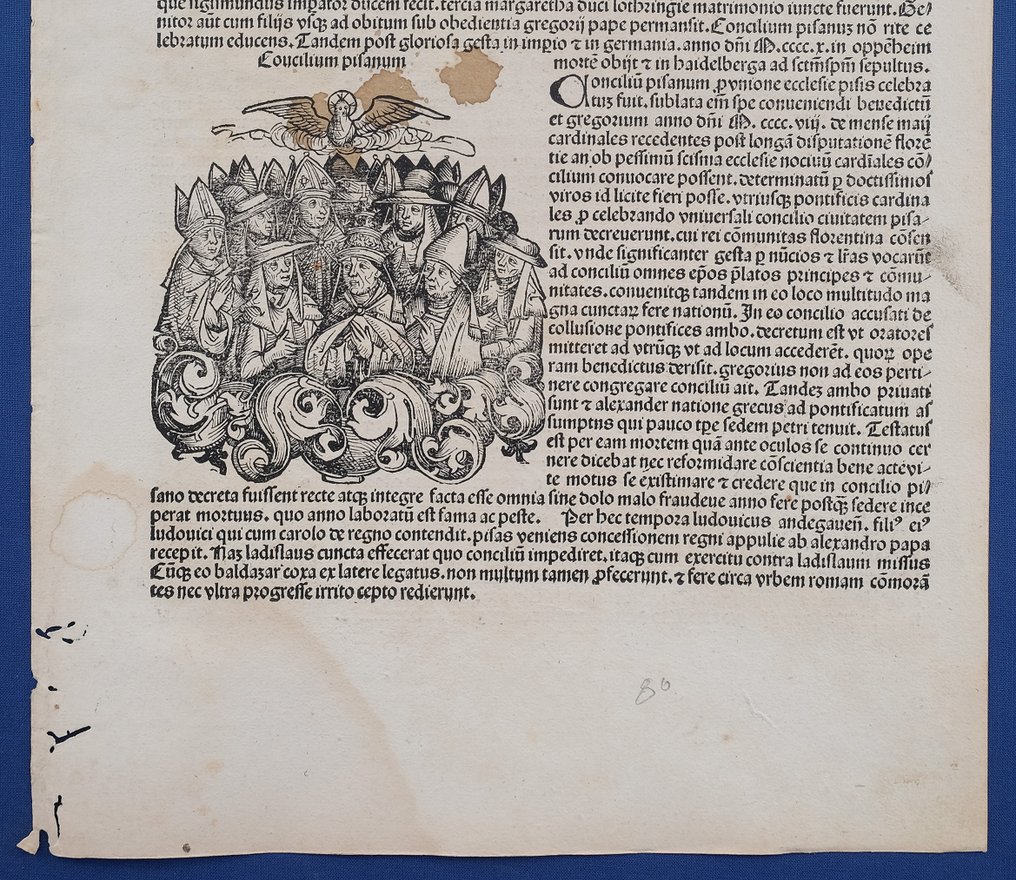 que sigismundus impator ducem fecit. tercia margaretha duci lothringie matrimonio iuncte fuerunt. Ge/
nitor aūt cum filijs vsqꝫ ad obitum sub obedientia gregorij pape permansit. Concilium pisanuꝫ nō rite ce
lebratum educens. Tandem post gloriosa gesta in impio ⁊ in germania. anno dñi M.cccc.x. in oppēheim
Concilium pisanum
mortē obijt ⁊ in haidelberga ad sctm̄spm̄ sepultus.
Conciliū pisanum ꝓ vnione ecclesie pisis celebra
tuꝫ fuit. sublata em̄ spe conueniendi benedictū
et gregorium anno dñi M. cccc. viij. de mense maij
cardinales recedentes post longā disputationē florē
tie an ob pessimū scisma ecclesie nociuū cardīales cō/
cilium conuocare possent. determinatū ꝑ doctissimos
viros id licite fieri posse. vtriusqꝫ pontificis cardina
les ꝓ celebrando vniuersali concilio ciuitatem pisa-
rum decreuerunt. cui rei cōmunitas florentina cōsen
sit. vnde significanter gesta ꝑ nūcios ⁊ lr̄as vocarūt
ad conciliū omnes ep̄os p̄latos principes ⁊ cōmu-
nitates. conuenitqꝫ tandem in eo loco multitudo ma
gna cunctaꝝ fere nationū. In eo concilio accusati de
collusione pontifices ambo. decretum est vt oratores
mitteret ad vtrūqꝫ vt ad locum accederēt. quoꝝ ope
ram benedictus derisit. gregorius non ad eos perti-
nere congregare conciliū ait. Tandeꝫ ambo priuati
sunt ⁊ alexander natione grecus ad pontificatum as
sumptus qui pauco tp̄e sedem petri tenuit. Testatus
est per eam mortem quā ante oculos se continuo cer
nere dicebat nec reformidare cōscientia bene acte vi-
te motus se existimare ⁊ credere que in concilio pi/
sano decreta fuissent recte atqꝫ integre facta esse omnia sine dolo malo fraudeue anno fere postqꝫ sedere ince
perat mortuus. quo anno laboratū est fama ac peste. Per hec tempora ludouicus andegaueñ. filiꝰ eiꝰ
ludouici qui cum carolo de regno contendit. pisas veniens concessionem regni appulie ab alexandro papa
recepit. Naꝫ ladislaus cuncta effecerat quo conciliū impediret. itaqꝫ cum exercitu contra ladislaum missus
Cūqꝫ eo baldazar coxa ex latere legatus. non multum tamen ꝓfecerunt. ⁊ fere circa vrbem romam cōmorā
tes nec vltra progresse irrito cepto redierunt.
80